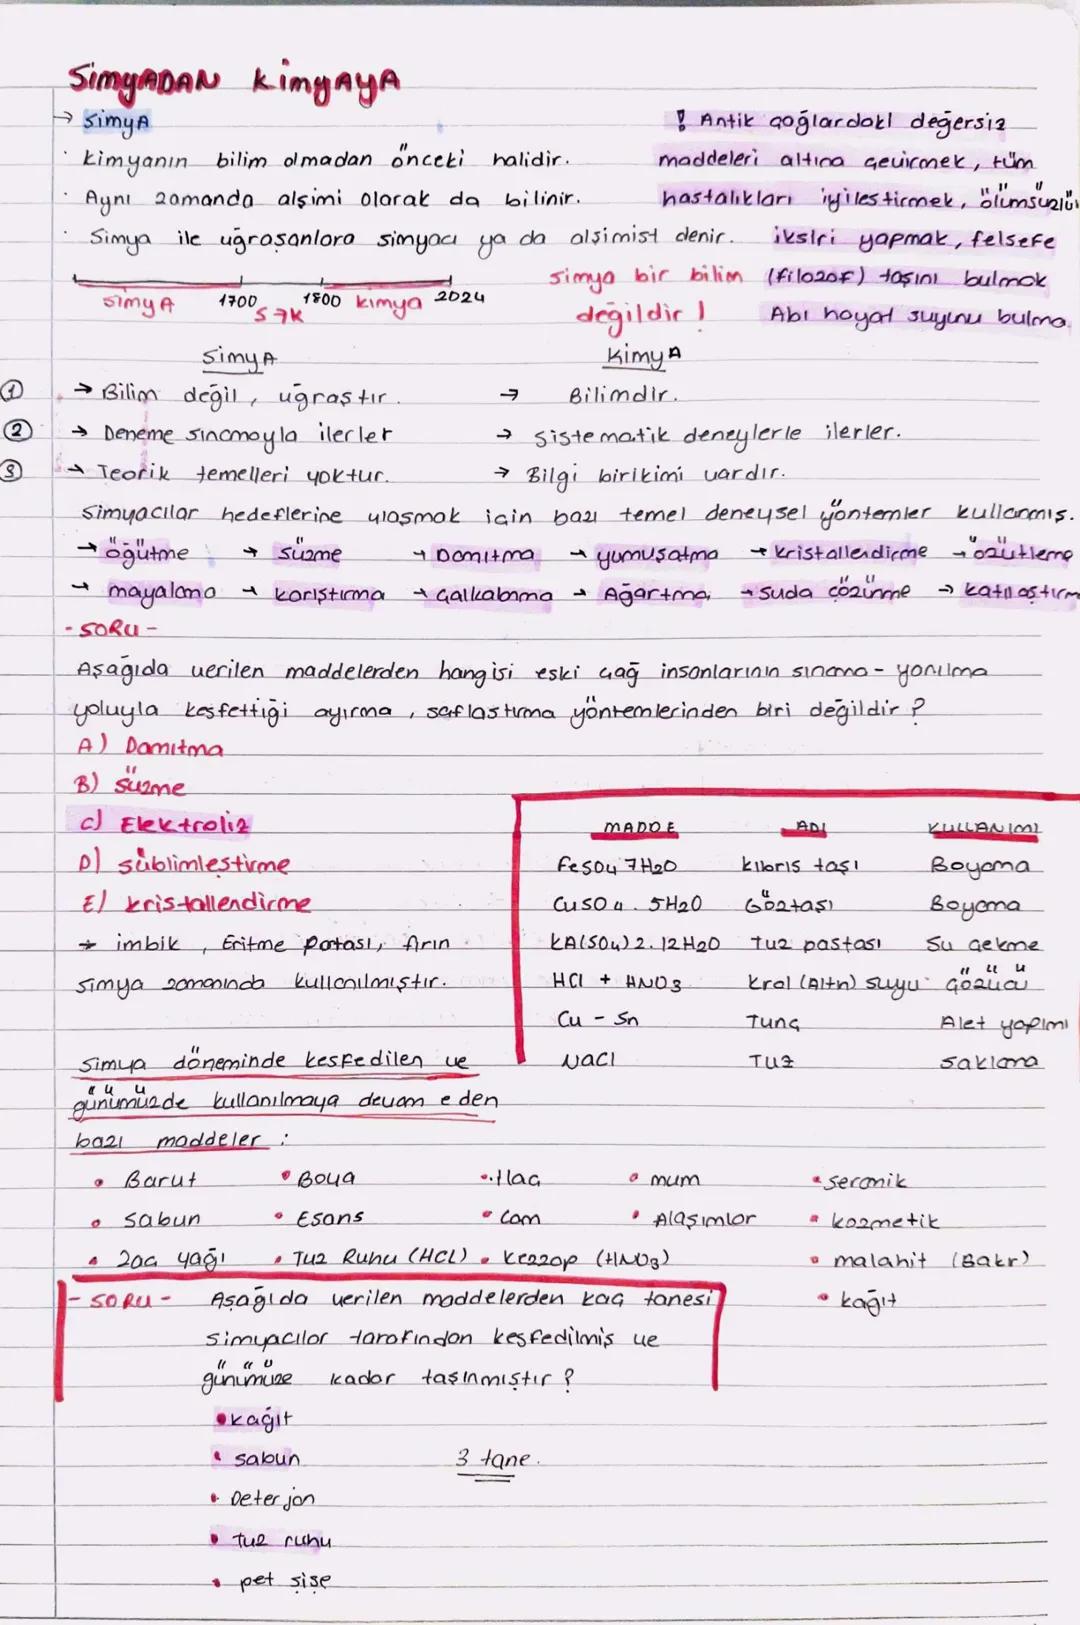 SimyADAN KimyAyA
→ SimyA
! Antik çağlardaki değersiz
· Kimyanın bilim olmadan önceki halidir.
maddeleri altına çevirmek, tüm
· Aynı zamanda alşimi olarak da bilinir.
hastalıkları iyileştirmek, ölümsüzlü
· Simya ile uğraşanlara simyacı ya da alşimist denir.
iksiri yapmak, felsefe
Simya bir bilim
(filozof) taşını bulmak
SimyA 1700 S→K 1800 Kimya 2024
değildir !
Abı hayat suyunu bulma
SimyA KimyA
① → Bilim değil, uğraştır. → Bilimdir.
② → Deneme sınamayla ilerler → Sistematik deneylerle ilerler.
③ → Teorik temelleri yoktur. → Bilgi birikimi vardır.
Simyacılar hedeflerine ulaşmak için bazı temel deneysel yöntemler kullanmış.
→ öğütme → süzme → Damıtma → yumuşatma → kristallendirme → özütleme
→ mayalama → karıştırma → çalkalama → Ağartma → suda çözünme → katılaştırm
- SORU -
Aşağıda verilen maddelerden hangisi eski çağ insanlarının sınama - yanılma
yoluyla keşfettiği ayırma, saflaştırma yöntemlerinden biri değildir ?
A) Damıtma
B) Süzme
C) Elektroliz
D) süblimleştirme
E) kristallendirme
→ imbik, Eritme potası, fırın
simya zamanında kullanılmıştır.
MADDE ADI KULLANIMI
FeSO4 7H2O Kıbrıs taşı Boyama
CuSO4 . 5H2O Göztaşı Boyama
KAl(SO4)2.12H2O Tuz pastası Su çekme
HCl + HNO3 Kral (Altn) suyu Çözücü
Cu - Sn Tunç Alet yapımı
NaCl Tuz saklama
Simya döneminde keşfedilen ve
günümüzde kullanılmaya devam eden
bazı maddeler :
• Barut • Boya • İlaç • mum • seramik
• sabun • Esans • Cam • Alaşımlar • kozmetik
• Zaç yağı • Tuz Ruhu (HCL) • Kezzap (HNO3) • malahit (Bakr)
• kağıt
- SORU - Aşağıda verilen maddelerden kaç tanesi
simyacılar tarafından keşfedilmiş ve
günümüze kadar taşınmıştır ?
• kağıt
• sabun
3 tane.
• Deterjan
• tuz ruhu
• pet şişe